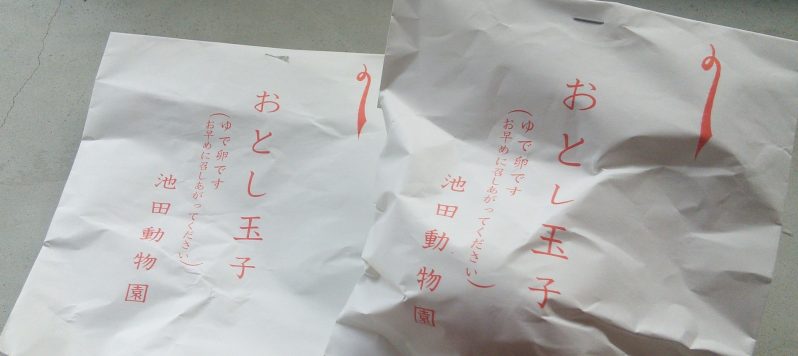 おとし玉子
(ゆで卵です
お早めに召しあがってください)
池田動物園
おとし玉子
(ゆで卵です
お早めに召しあがってください)
池田動物園